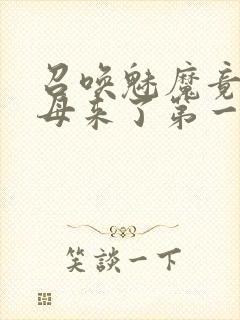 召唤魅魔竟
母来了第一
笑談一下